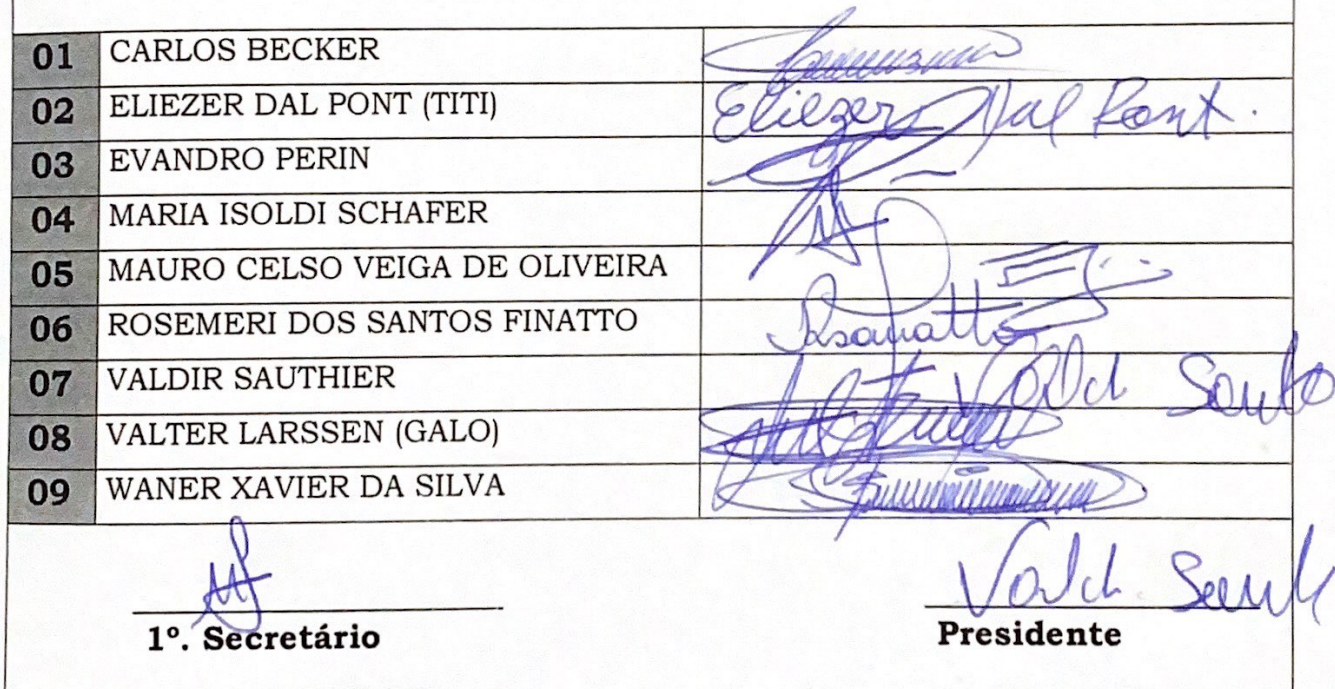 01 CARLOS BECKER
02 ELIEZER DAL PONT (TITI) Eliezer Dal Pont.
03 EVANDRO PERIN
04 MARIA ISOLDI SCHAFER
05 MAURO CELSO VEIGA DE OLIVEIRA
06 ROSEMERI DOS SANTOS FINATTO
07 VALDIR SAUTHIER
08 VALTER LARSSEN (GALO)
09 WANER XAVIER DA SILVA
1º. Secretário Presidente